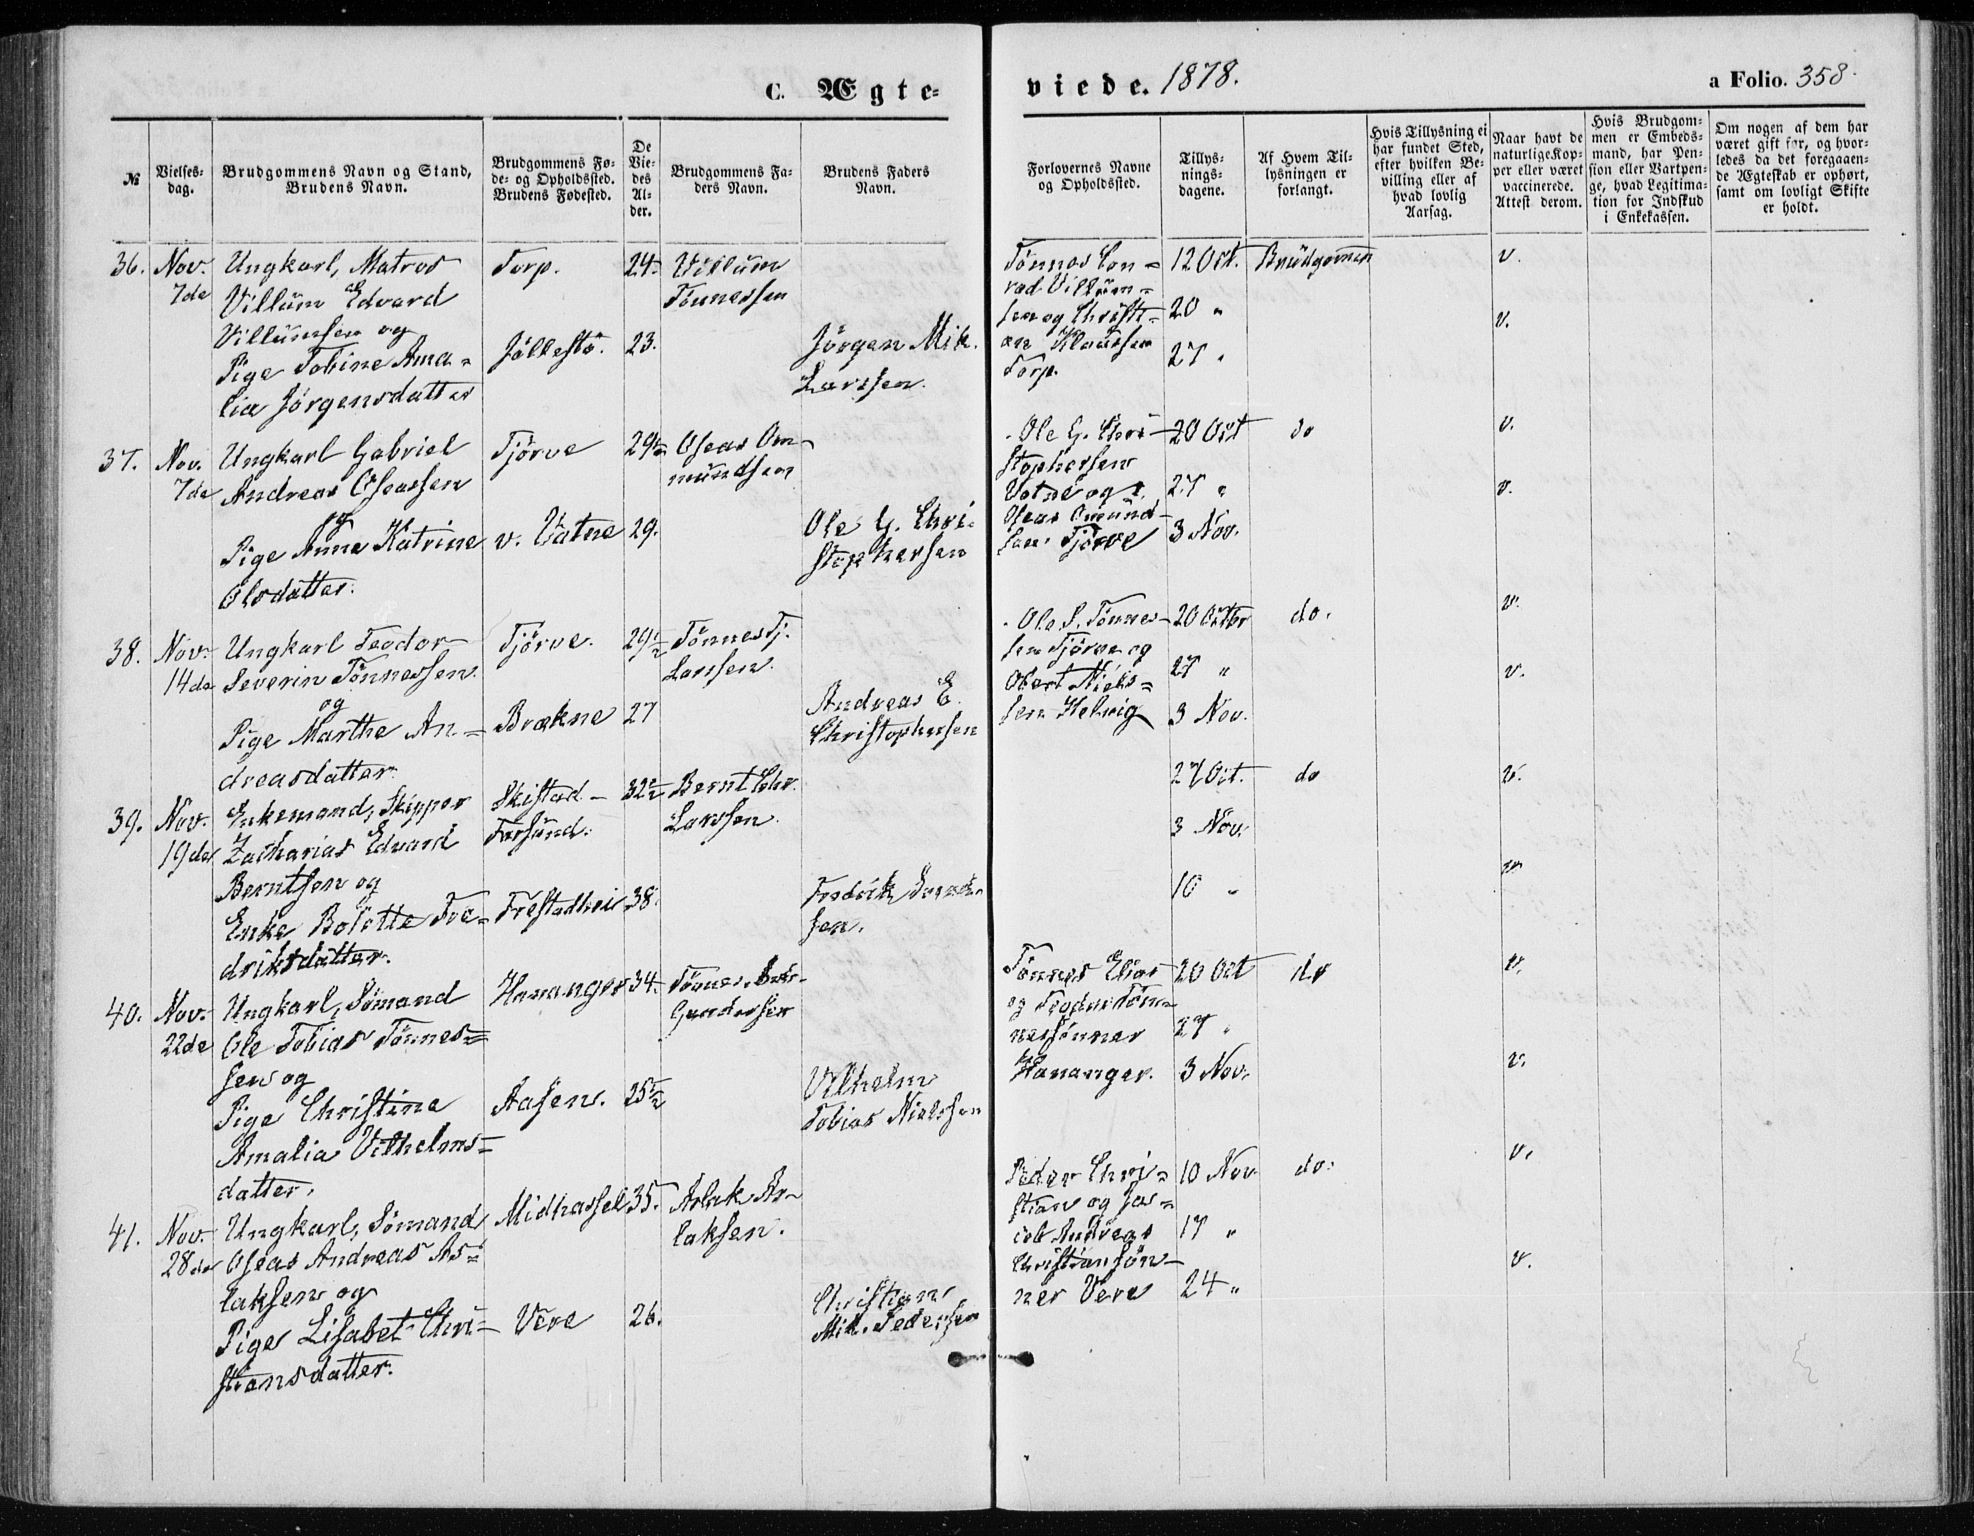 C. Ægte-
viede. 1878.
a Folio. 358.
№
Vielses-
dag.
Brudgommens Navn og Stand,
Brudens Navn.
Brudgommens Fø-
de- og Opholdssted.
Brudens Fødested.
De
Vie-
des
Al-
der.
Brudgommens Fa-
ders Navn.
Brudens Faders
Navn.
Forlovernes Navne
og Opholdssted.
Tillys-
nings-
dagene.
Af Hvem Til-
lysningen er
forlangt.
Hvis Tillysning ei
har fundet Sted,
efter hvilken Be-
villing eller af
hvad lovlig
Aarsag.
Naar havt de
naturlige Kop-
per eller været
vaccinerede.
Attest derom.
Hvis Brudgom-
men er Embeds-
mand, har Pen-
sion eller Vartpen-
ge, hvad Legitima-
tion for Indskud
i Enkekassen.
Om nogen af dem har
været gift før, og hvor-
ledes da det foregaaen-
de Ægteskab er ophørt,
samt om lovligt Skifte
er holdt.
36.
Nov.
7de
Ungkarl, Matros
Villum Edvard
Villumsen og
Pige Tobine Ama-
lia Jörgensdatter
Torp.
Jöllestö.
24.
23.
Villum
Tönnessen
Jörgen Mik.
Larssen.
Tönnes Con-
rad Villum-
sen og Christi-
an Klaussen
Torp.
12 Oct.
20 "
27 "
Brudgommen
v.
v.
37.
Nov.
7de
Ungkarl Gabriel
Andreas Oseassen
og
Pige Anne Katrine
Olsdatter.
Tjörve
v. Vatne
29½
29.
Oseas Om-
mundsen
Ole G. Chri-
stophersen
Ole G. Chri-
stophersen
Vatne og
Oseas Omund-
sen Tjörve
20 Oct
27 "
3 Nov.
do
v.
v.
38.
Nov.
14de
Ungkarl Teodor
Severin Tönnessen
og
Pige Marthe An-
dreasdatter.
Tjörve.
Brækne
29½
27
Tönnes Tj.
Larssen.
Andreas E.
Christophersen
Ole S. Tönnes-
sen Tjörve og
Obert Niels-
sen Helvig
20 Octbr
27 "
3 Nov.
do.
v.
v.
39.
Nov.
19de
Enkemand, Skipper
Zacharias Edvard
Berntsen og
Enke Bolette Fre-
driksdatter.
Skistad -
Farsund.
Frestadhei
32½
38.
Bernt Chr.
Larssen.
Fredrik
sen.
27 Oct.
3 Nov.
10 "
do
v.
v.
40.
Nov.
22de
Ungkarl, Sömand
Ole Tobias Tönnes-
sen og
Pige Christine
Amalia Vilhelms-
datter.
Hananger
Aasen.
34.
25½
Tönnes
Gundersen
Vilhelm
Tobias Nielssen
Tönnes Elias
og Teodor Tön-
nessönner
Hananger.
20 Oct
27 "
3 Nov.
do
v.
v.
41.
Nov.
28de
Ungkarl, Sömand
Oseas Andreas As-
laksen og
Pige Lisabet Chri-
stiansdatter.
Midhassel
Vere
35.
26.
Aslak As-
laksen.
Christian
Mik. Pedersen
Peder Chri-
stian og Ja-
cob Andreas
Christiansön-
ner Vere
10 Nov
17 "
24 "
do.
v.
v.